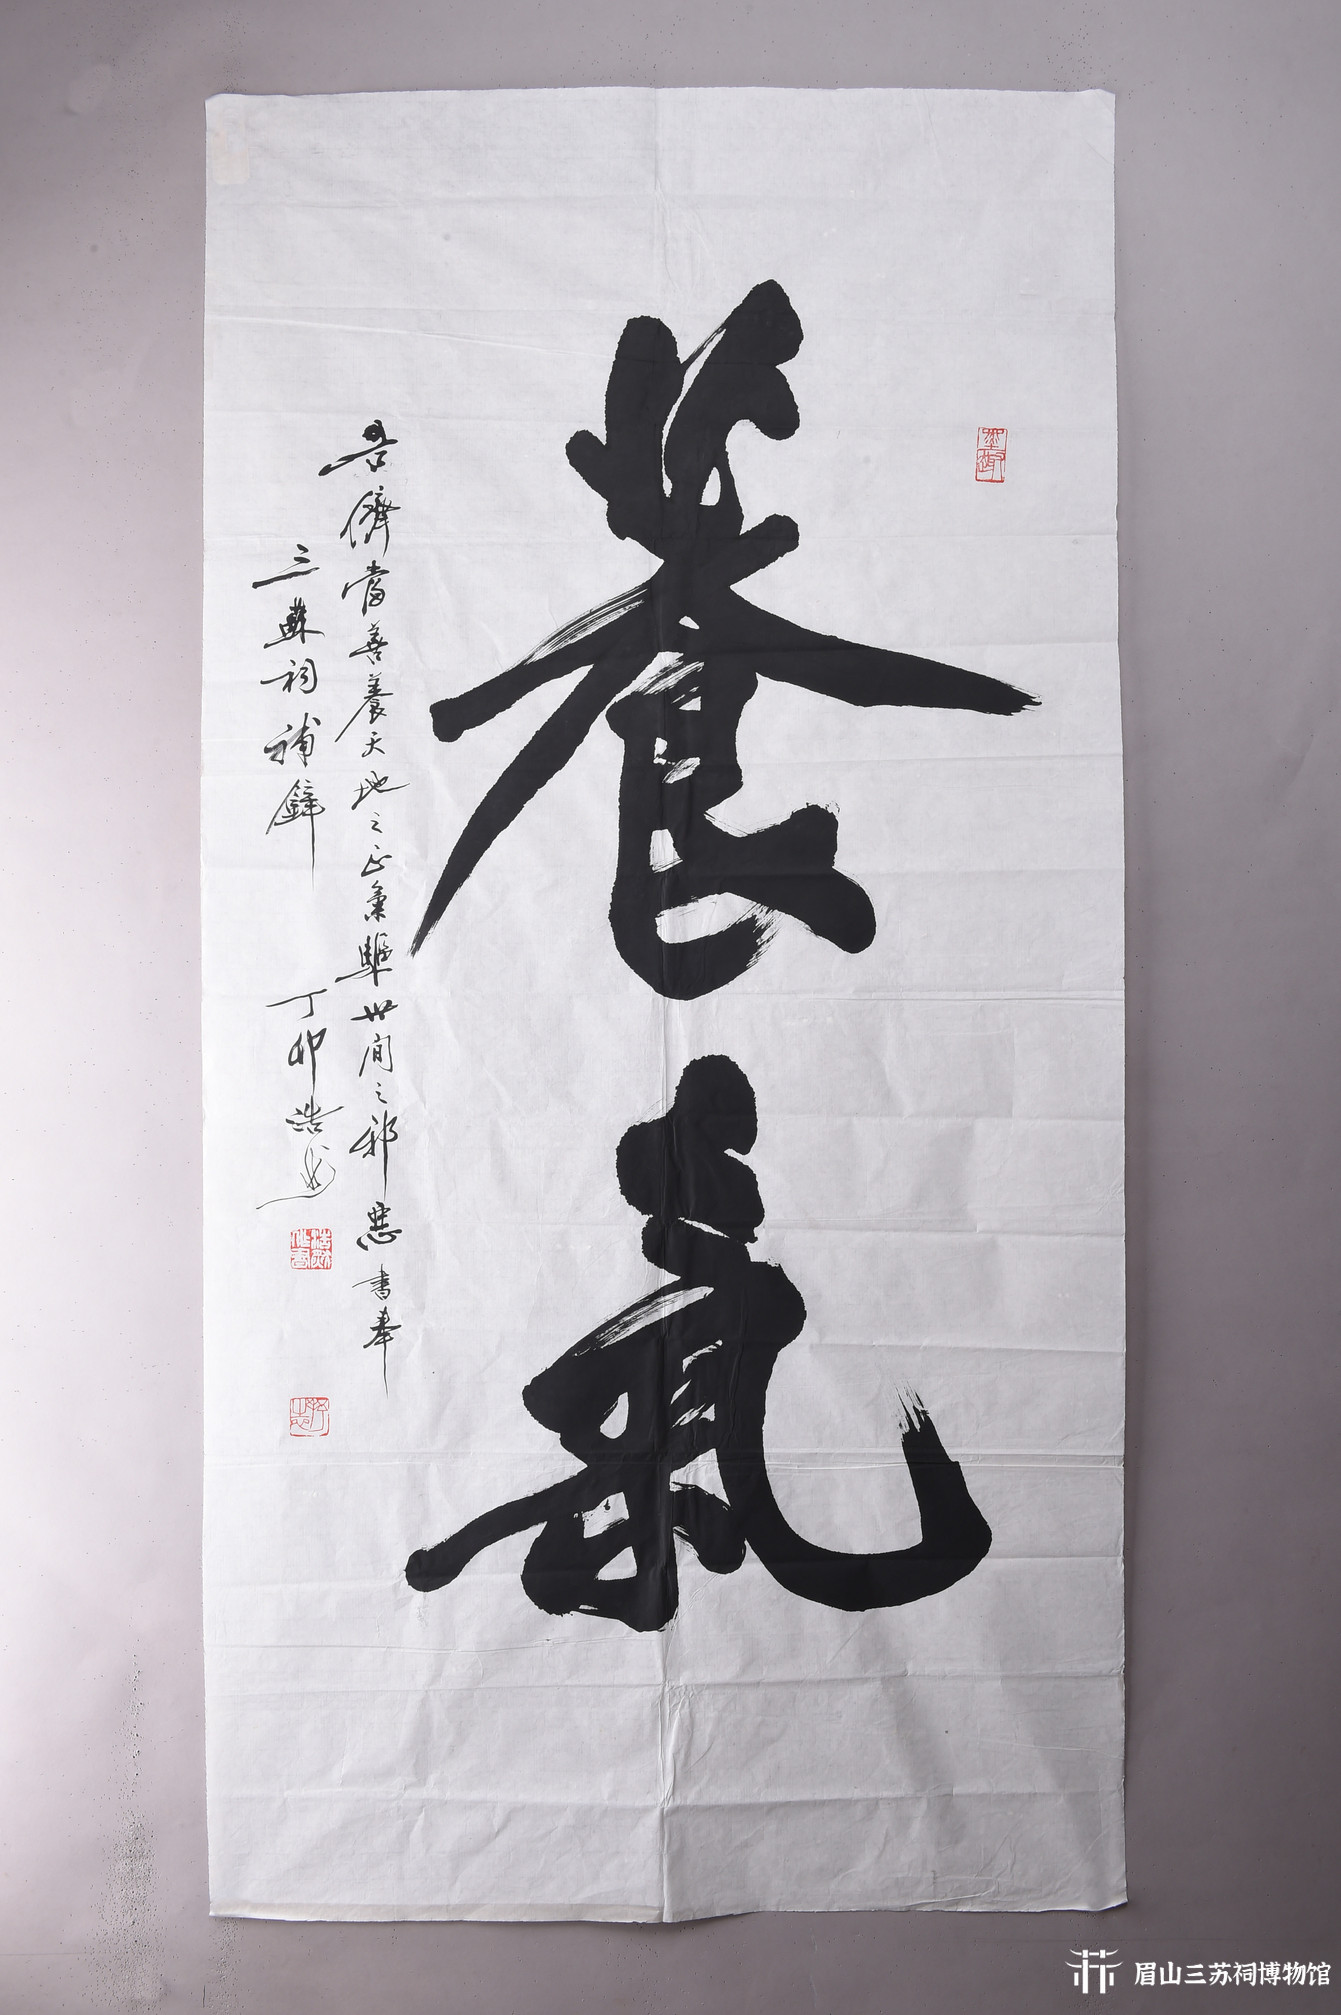 養氣
吾儕當善養天地之正氣驅世間之邪惡書奉
三蘇祠補壁
丁卯浩
墨趣
眉山三苏祠博物馆